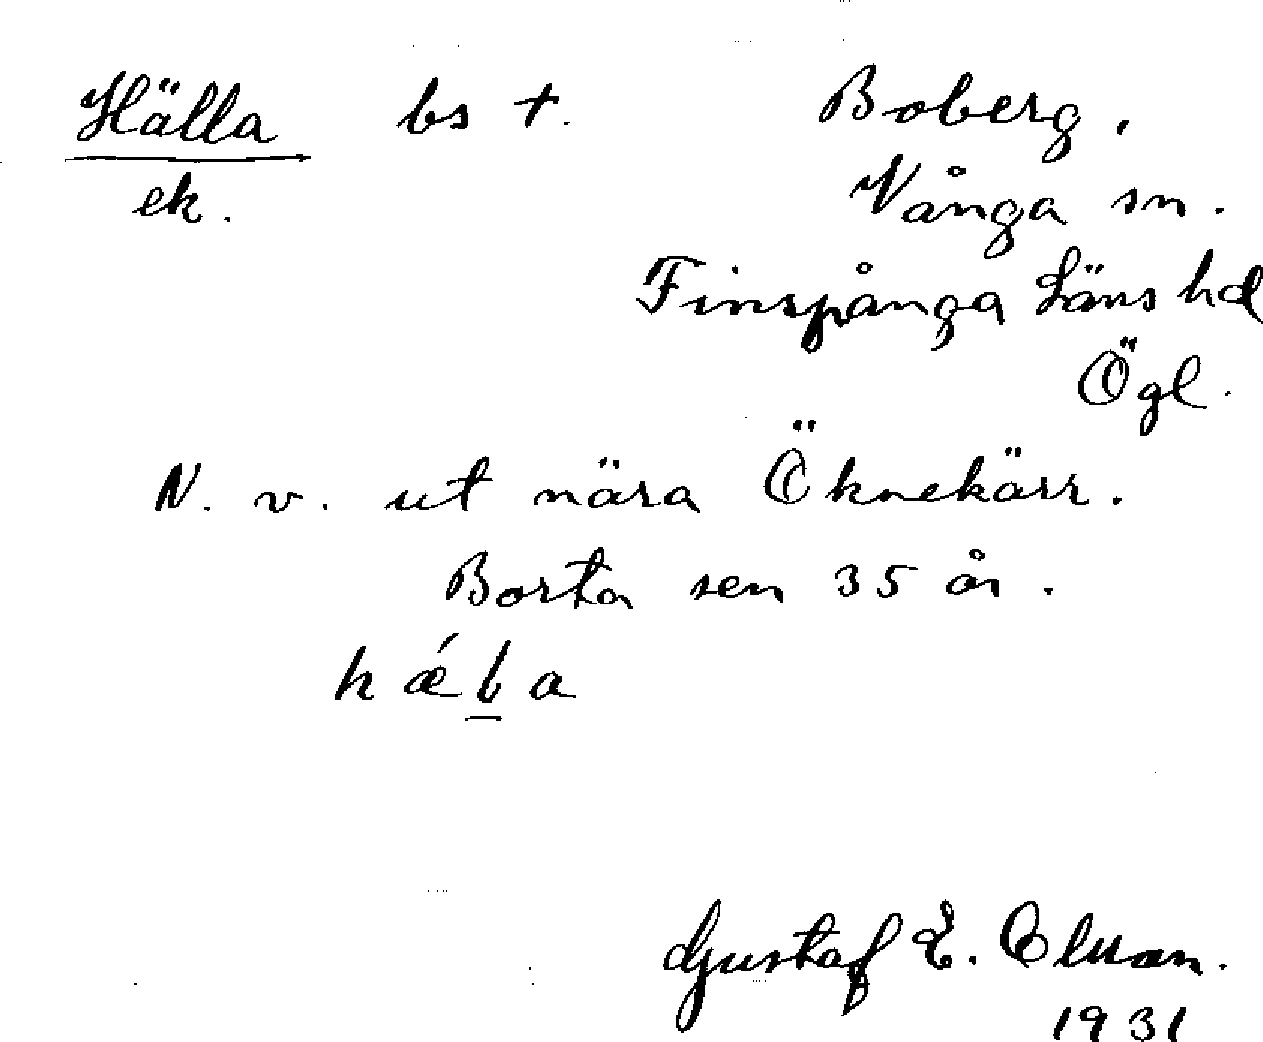 Hälla bs †. Boberg,
ek. Vånga sn.
Finspånga Läns hd
Ögl.
N. v. ut nära Öknekärr.
Borta sen 35 år.
h ǽ l a
Gustaf E.
1931